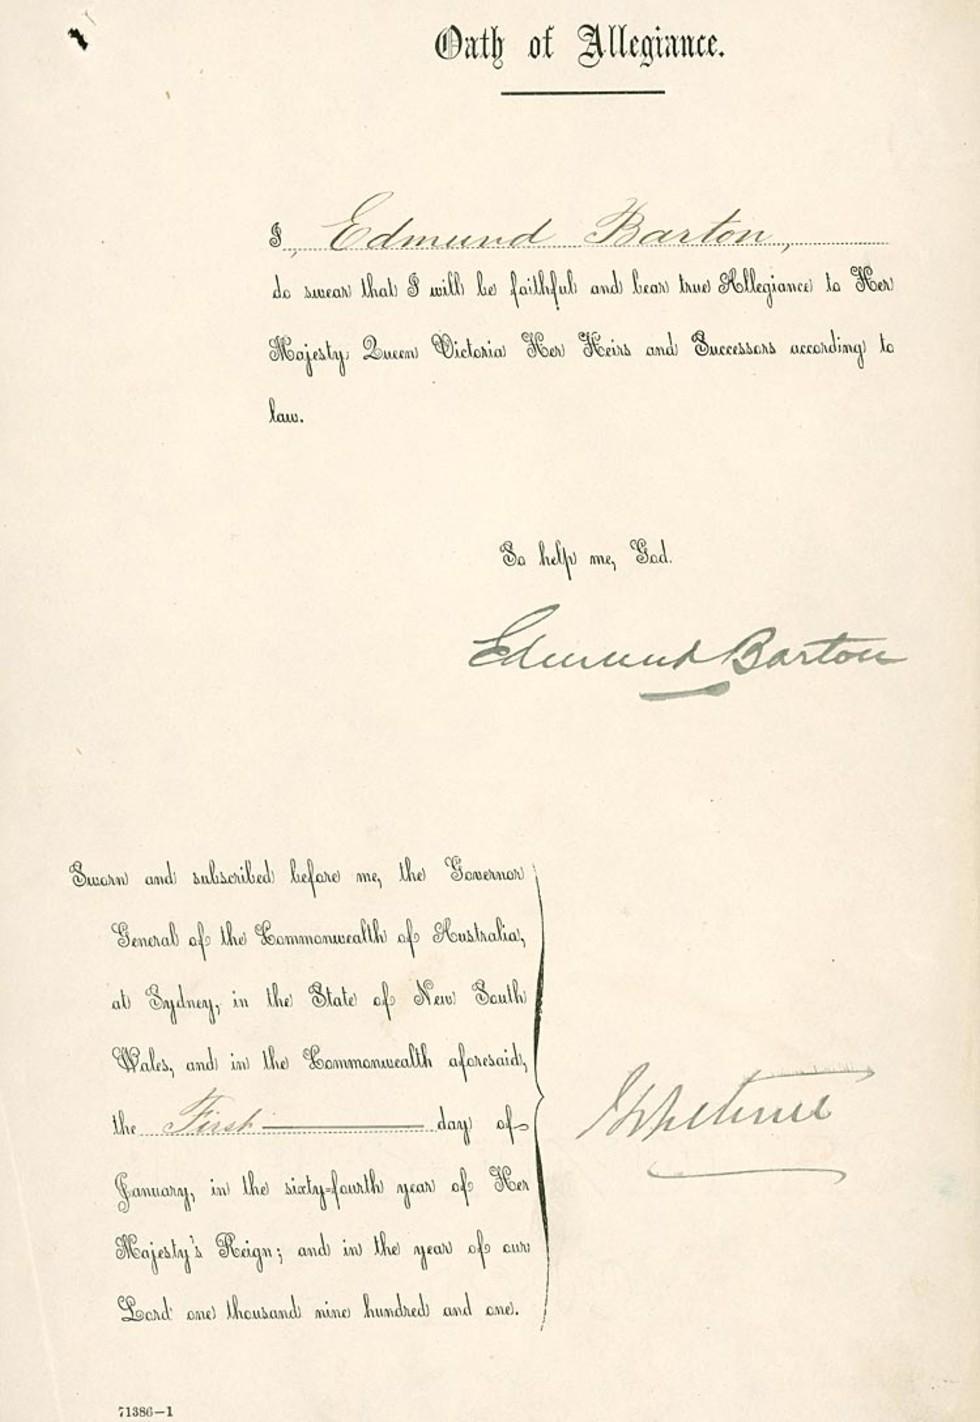 Oath of Allegiance.
I, Edmund Barton,
do swear that I will be faithful and bear true Allegiance to Her
Majesty Queen Victoria Her Heirs and Successors according to
law.
So help me, God.
Edmund Barton
Sworn and subscribed before me, the Governor
General of the Commonwealth of Australia,
at Sydney, in the State of New South
Wales, and in the Commonwealth aforesaid,
the First day of
January, in the sixty-fourth year of Her
Majesty's Reign; and in the year of our
Lord one thousand nine hundred and one.
71386—1